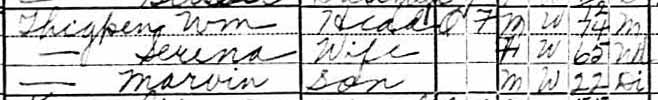 Thigpen Wm Head O F M W 74 M
— Serena Wife F W 65 M
— Marvin Son M W 22 Di